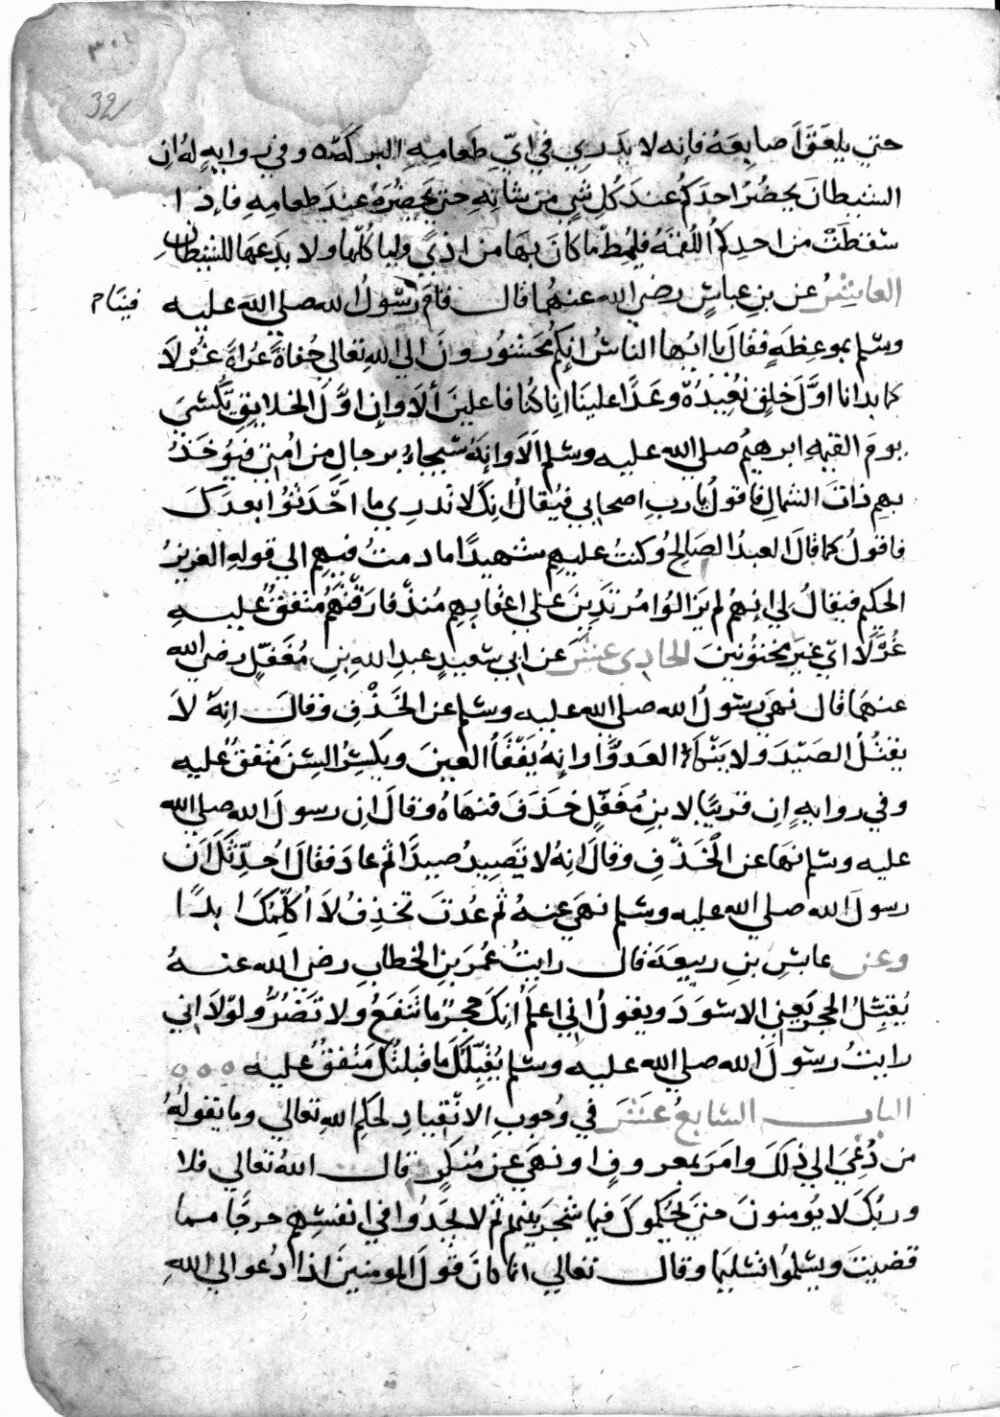 ٣٠١
32
حتي يلعق أصابعه فإنه لا يدري في ايّ طعامه البركة وفي رواية له ان
الشيطان يحضر احدكم عند كل شي من شانه حتي يحضره عند طعامه فإذا
سقطت من احدكم اللقمة فليمط ما كان بها من اذي وليا كلها ولا يدعها للشيطان
العاشر عن بن عباس رضي الله عنهما قال قام رسول الله صلي الله عليه فينا م
وسلم بموعظة فقال يا ايها الناس انكم محشورون الي الله تعالي حفاة عراة غرلا
كما بدانا اول خلق نعيده وعدا علينا انا كنا فاعلين ألا وإن اول الخلايق يكسي
يوم القيمة ابرهيم صلي الله عليه وسلم ألا وإنه سيجاء برجال من امتي فيؤخذ
بهم ذات الشمال فاقول يا رب اصحابي فيقال انك لا تدري ما احدثوا بعدك
فاقول كما قال العبد الصالح وكنت عليهم شهيدا ما دمت فيهم الي قوله العزيز
الحكيم فيقال لي انهم لم يزالوا مرتدين علي اعقابهم منذ فارقتهم متفق عليه
غرلا اي غير مختونين الحادي عشر عن ابي سعيد عبد الله بن مغفل رضي الله
عنهما قال نهي رسول الله صلي الله عليه وسلم عن الخذف وقال انه لا
يقتل الصيد ولا ينكا العدو وانه يفقأ العين ويكسر السن متفق عليه
وفي رواية إن قريبا لابن مغفل خذف فنهاه وقال ان رسول الله صلي الله
عليه وسلم نها عن الخذف وقال انه لا تصيد صيدا ثم عاد فقال احدثك ان
رسول الله صلي الله عليه وسلم نهي عنه ثم عدت تخذف لا اكلمك ابدا
وعن عابس بن ربيعة قال رايت عمر بن الخطاب رضي الله عنه
يقبل الحجر يعني الاسود ويقول اني اعلم انك حجر ما تنفع ولا تضر ولولا اني
رايت رسول الله صلي الله عليه وسلم يقبلك ما قبلتك متفق عليه
الباب السابع عشر في وجوب الانقياد لحكم الله تعالي وما يقوله
من دعي الي ذلك وامر بمعروف او نهي عن منكر قال الله تعالي فلا
وربك لا يومنون حتي يحكموك فيما شجر بينهم ثم لا يجدوا في انفسهم حرجا مما
قضيت ويسلموا تسليما وقال تعالي انما كان قول المومنين اذا دعوا الي الله